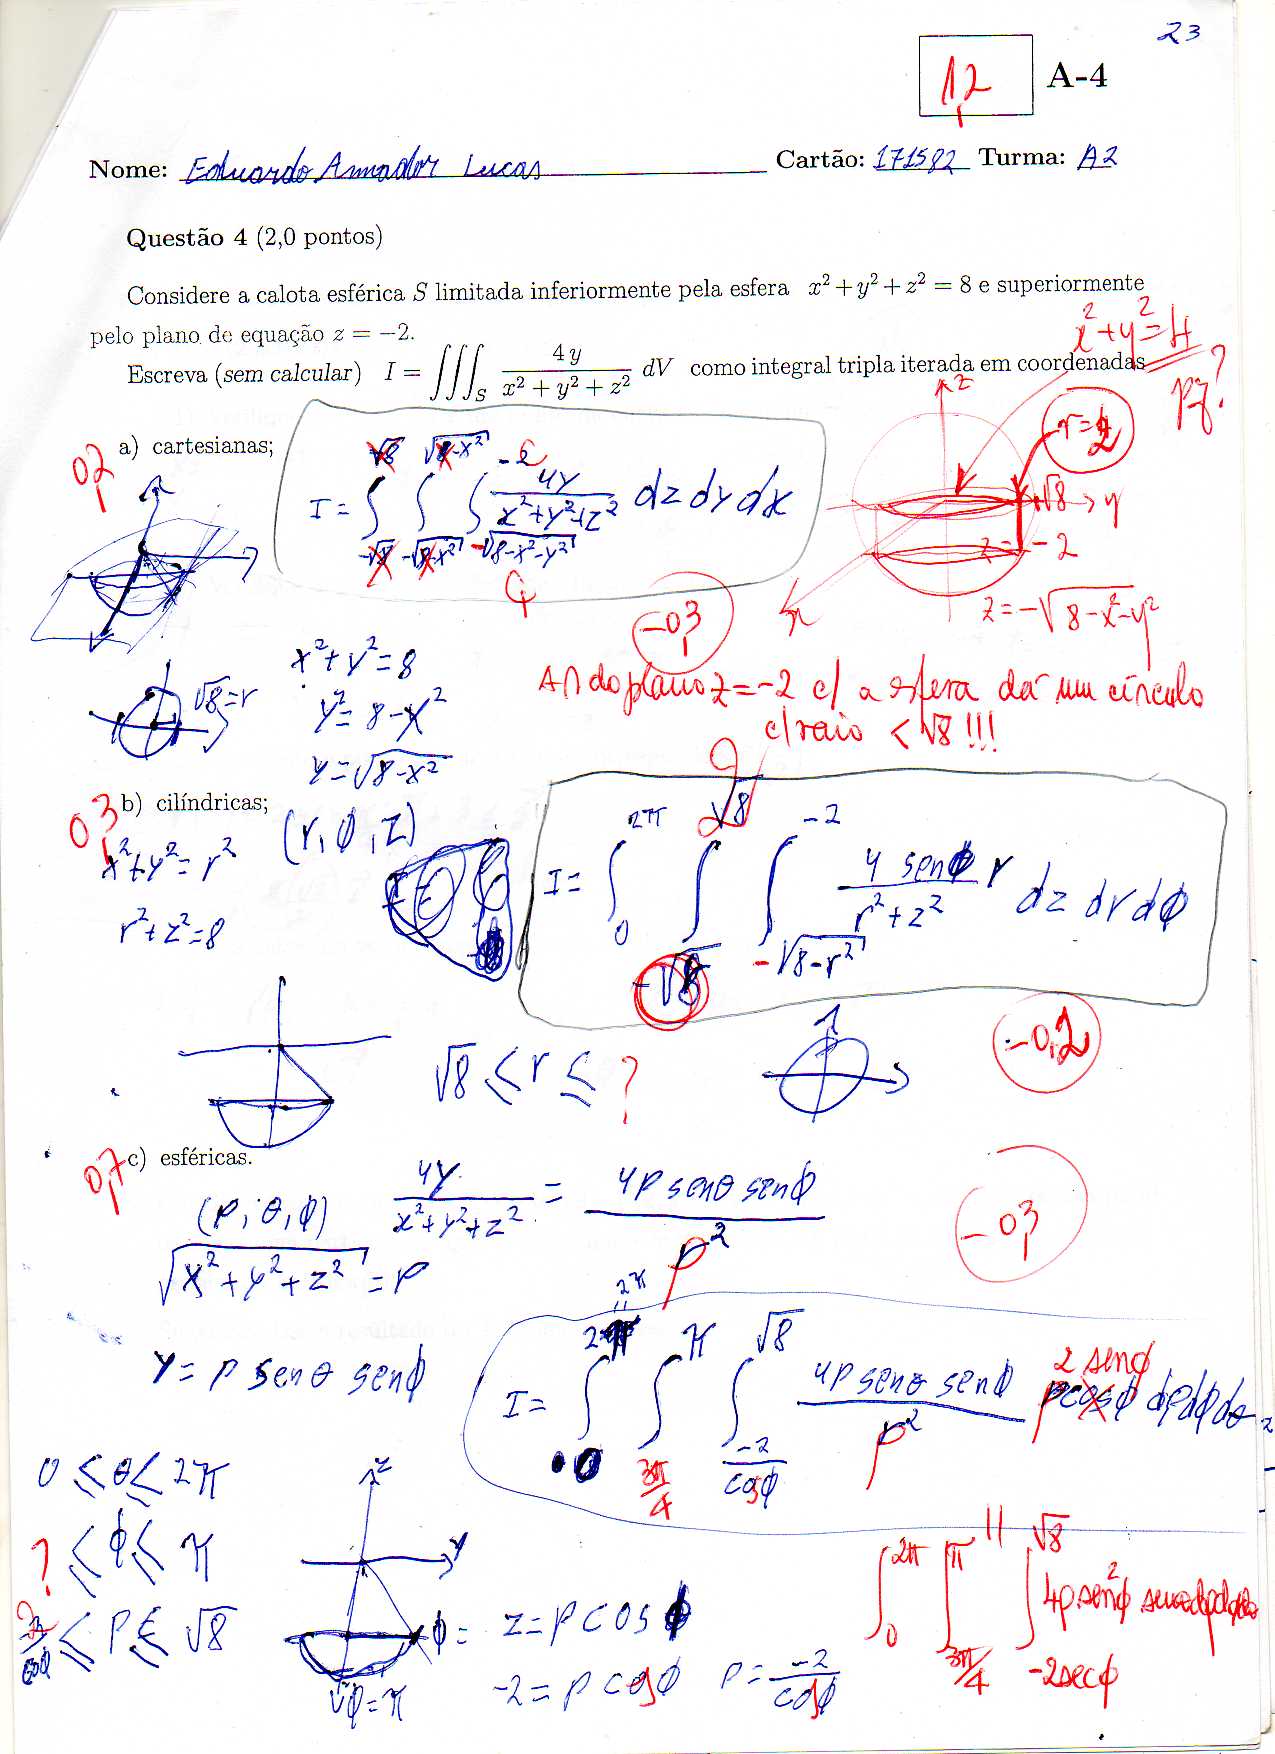 23
1,2 A-4
Nome: Eduardo Amador Lucas Cartão: 171582 Turma: A2
Questão 4 (2,0 pontos)
Considere a calota esférica S limitada inferiormente pela esfera x² + y² + z² = 8 e superiormente
pelo plano de equação z = −2.
x² + y² = 4
Escreva (sem calcular) I = ∭_S 4y / (x² + y² + z²) dV como integral tripla iterada em coordenadas
a) cartesianas;
0,2
I = ∫_{-√8}^{√8} ∫_{-√(8-x²)}^{√(8-x²)} ∫_{-√(8-x²-y²)}^{-2} 4y / (x²+y²+z²) dz dy dx
z
√8 → y
z = -2
z = -√(8-x²-y²)
-0,3
x²+y²=8
√8=r
y²= 8-x²
y=√(8-x²)
A ∩ do plano z=-2 c/ a esfera dá um círculo
c/ raio < √8 !!!
b) cilíndricas;
0,3
(r, ϕ, z)
x²+y²= r²
r²+z²=8
I= ∫_0^{2π} ∫_{-√8}^{√8} ∫_{-√(8-r²)}^{-2} 4 senϕ r / (r²+z²) dz dr dϕ
2
√8 ≤ r ≤ ?
-0,2
c) esféricas.
0,7
(ρ, θ, ϕ)
4y / (x²+y²+z²) = 4ρ senθ senϕ / ρ²
-0,3
√(x²+y²+z²) = ρ
y= ρ senθ senϕ
2π
I= ∫_0^{2π} ∫_{3π/4}^{π} ∫_{-2/cosϕ}^{√8} 4ρ senθ senϕ / ρ² ρcosϕ dρdϕdθ
2 senϕ
0 ≤ θ ≤ 2π
? ≤ ϕ ≤ π
-2/cosϕ ≤ ρ ≤ √8
z
y
ϕ=
ϕ=π
z=ρ cosϕ
-2= ρ cosϕ ρ= -2/cosϕ
= ∫_0^{2π} ∫_{3π/4}^{π} ∫_{-2secϕ}^{√8} 4ρ sen²ϕ senθ dρdϕdθ